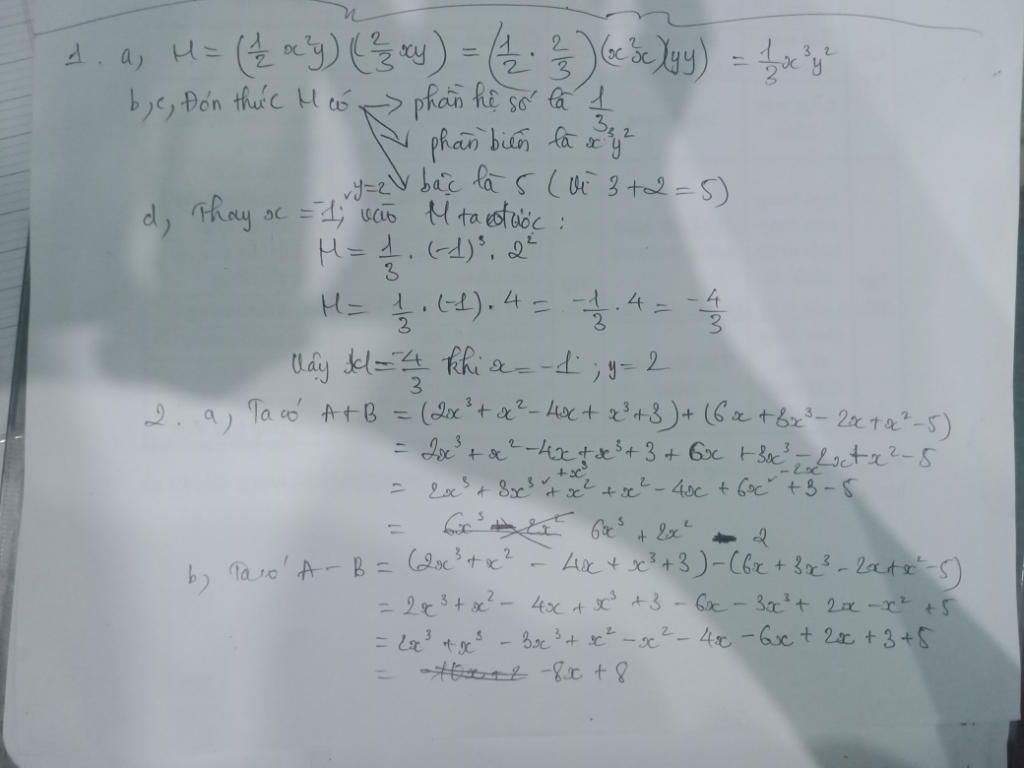 1. a, M = (1/2 x²y)(2/3 xy) = (1/2 · 2/3)(x²x)(yy) = 1/3 x³y²
b, c, Đơn thức M có → phần hệ số là 1/3
phần biến là x³y²
bậc là 5 (vì 3+2=5)
d, Thay x = -1; y=2 vào M ta được:
M = 1/3 . (-1)³ . 2²
M = 1/3 . (-1) . 4 = -1/3 . 4 = -4/3
Vậy M = -4/3 khi x = -1 ; y = 2
2. a, Ta có A+B = (2x³ + x² - 4x + x³ + 3) + (6x + 3x³ - 2x + x² - 5)
= 2x³ + x² - 4x + x³ + 3 + 6x + 3x³ - 2x + x² - 5
= 2x³ + 3x³ + x³ + x² + x² - 4x + 6x - 2x + 3 - 5
= 6x³ + 2x² - 2
b, Ta có A - B = (2x³ + x² - 4x + x³ + 3) - (6x + 3x³ - 2x + x² - 5)
= 2x³ + x² - 4x + x³ + 3 - 6x - 3x³ + 2x - x² + 5
= 2x³ + x³ - 3x³ + x² - x² - 4x - 6x + 2x + 3 + 5
= -8x + 8